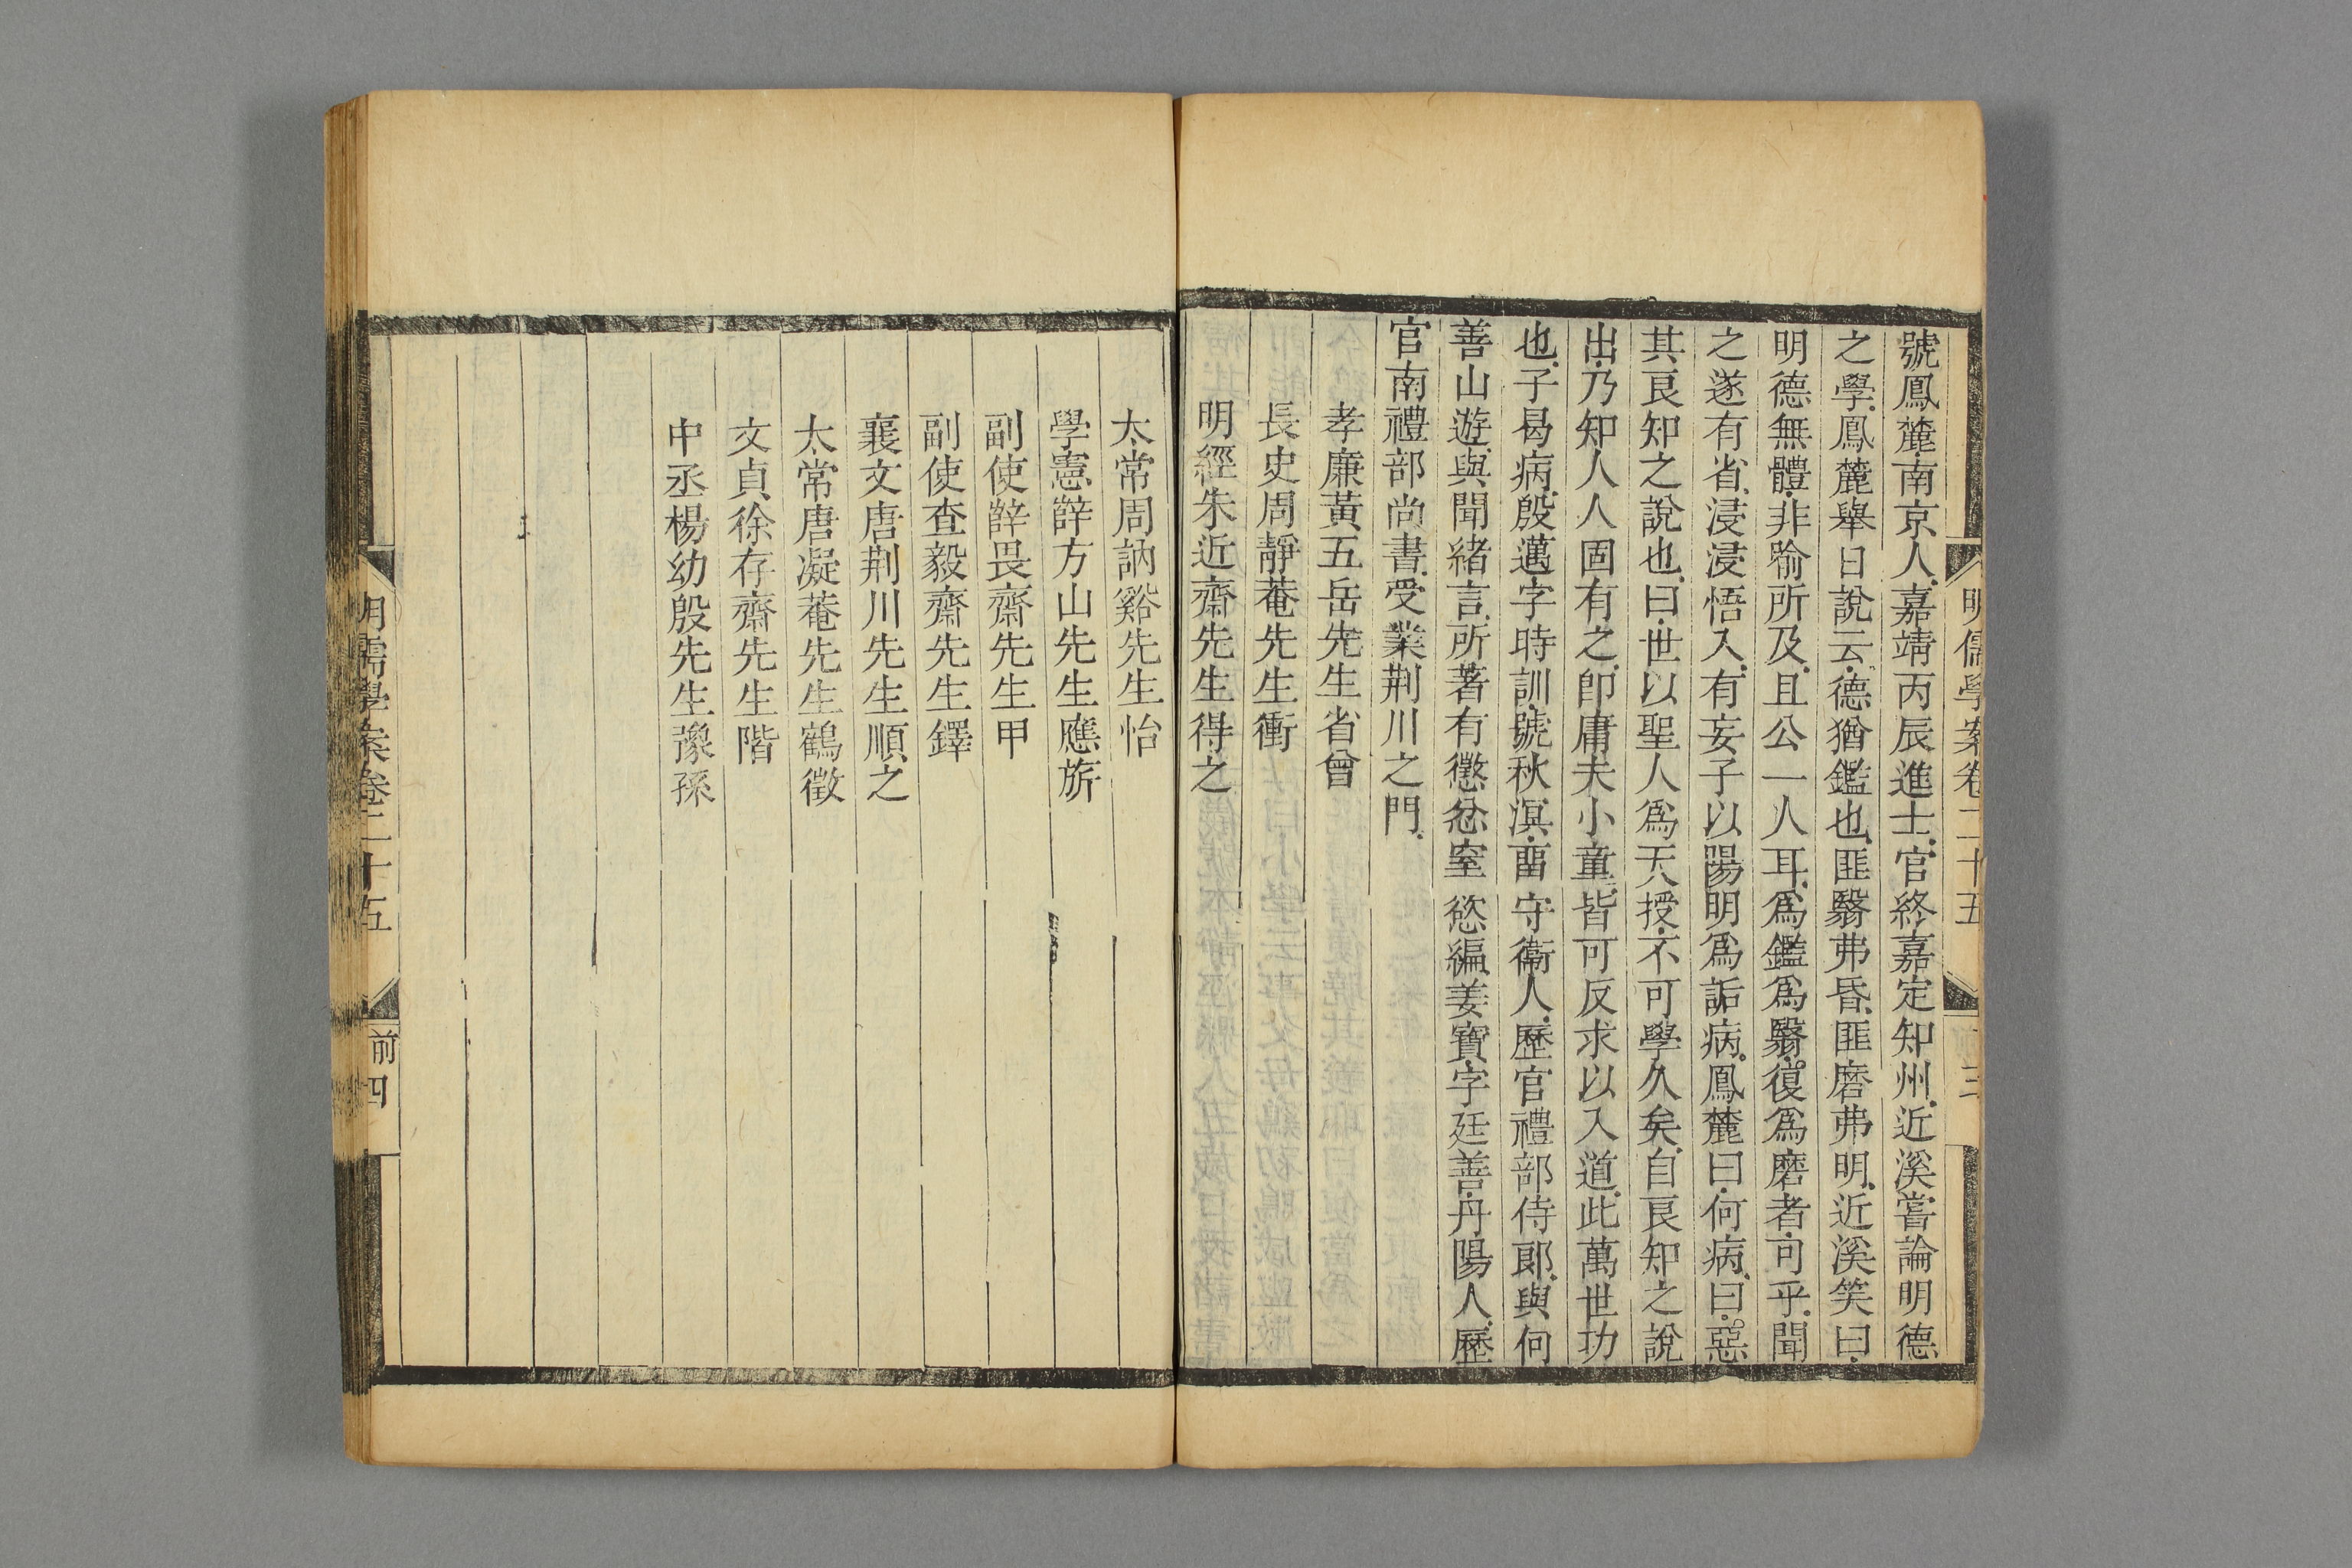 明儒學案卷二十五
三
號鳳麓南京人嘉靖丙辰進士官終嘉定知州近溪嘗論明德
之學鳳麓舉日說云德猶鑑也匪翳弗昏匪磨弗明近溪笑曰
明德無體非喻所及且公一人耳爲鑑爲翳復爲磨者可乎聞
之遂有省浸浸悟入有妄子以陽明爲詬病鳳麓曰何病曰惡
其良知之說也曰世以聖人爲天授不可學久矣自良知之說
出乃知人人固有之卽庸夫小童皆可反求以入道此萬世功
也子曷病殷邁字時訓號秋溟畱守衞人歷官禮部侍郞與何
善山遊與聞緒言所著有懲忿窒慾編姜寶字廷善丹陽人歷
官南禮部尚書受業荆川之門
孝廉黃五岳先生省曾
長史周靜菴先生衝
明經朱近齋先生得之
太常周訥谿先生怡
學憲薛方山先生應旂
副使薛畏齋先生甲
副使查毅齋先生鐸
襄文唐荆川先生順之
太常唐凝菴先生鶴徵
文貞徐存齋先生階
中丞楊幼殷先生豫孫
明儒學案卷二十五
前四